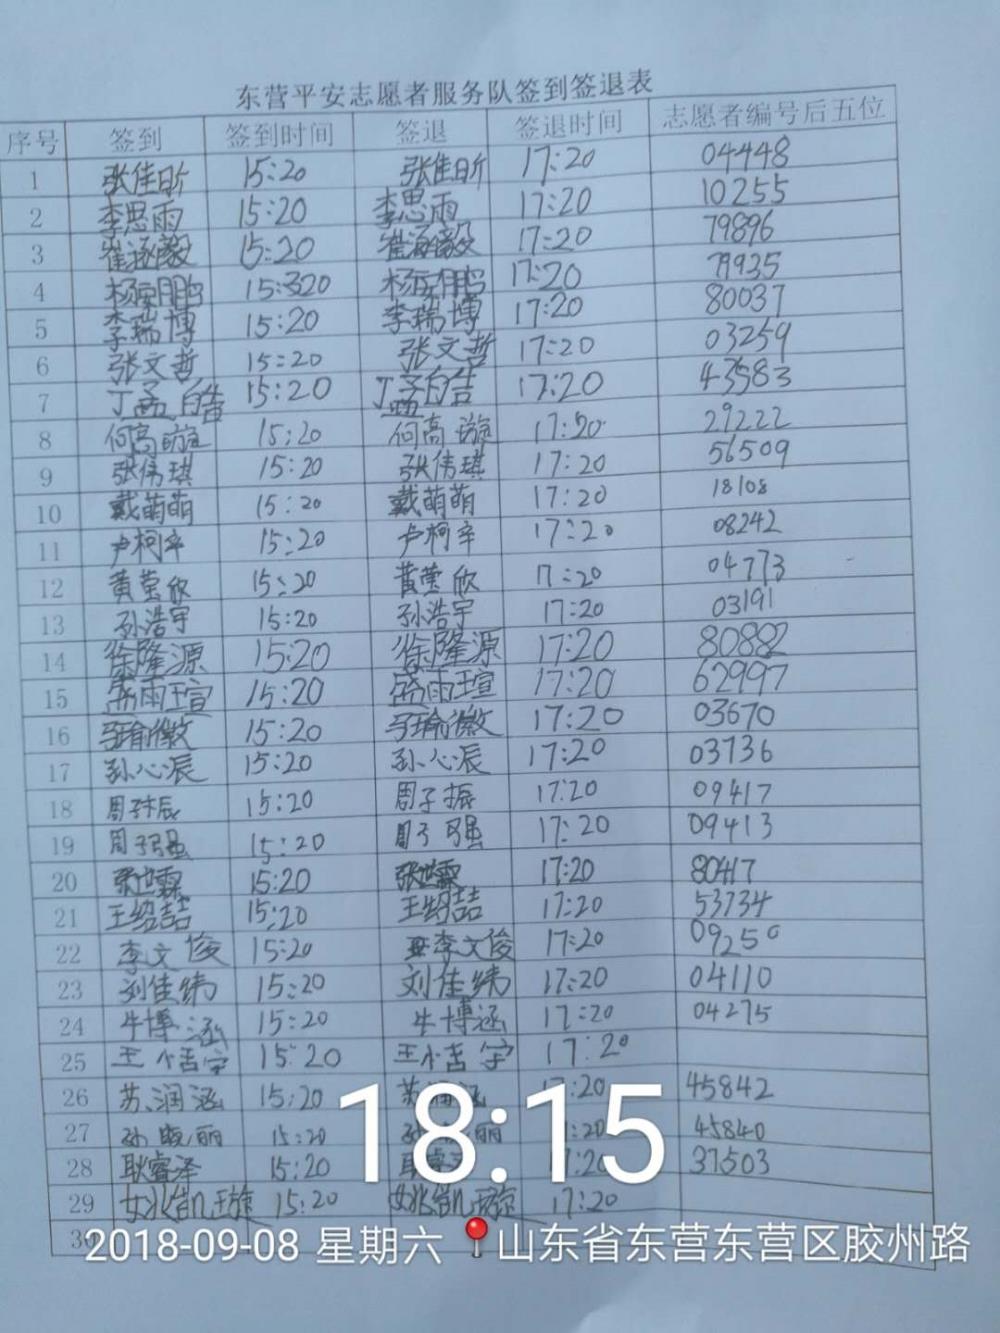 东营平安志愿者服务队签到签退表
序号 签到 签到时间 签退 签退时间 志愿者编号后五位
1 张佳昕 15:20 张佳昕 17:20 04448
2 李思雨 15:20 李思雨 17:20 10255
3 崔涵毅 15:20 崔涵毅 17:20 79896
4 15:320 17:20 79935
5 李瑞博 15:20 李瑞博 17:20 80037
6 张文哲 15:20 张文哲 17:20 03259
7 15:20 17:20 43583
8 何高璇 15:20 何高璇 17:20 29222
9 张伟琪 15:20 张伟琪 17:20 56509
10 戴萌萌 15:20 戴萌萌 17:20 18108
11 卢柯辛 15:20 卢柯辛 17:20 08242
12 黄莹欣 15:20 黄莹欣 17:20 04773
13 孙浩宇 15:20 孙浩宇 17:20 03191
14 徐隆源 15:20 徐隆源 17:20 80882
15 盛雨瑄 15:20 盛雨瑄 17:20 62997
16 15:20 17:20 03670
17 孙心辰 15:20 孙心辰 17:20 03736
18 15:20 周子振 17:20 09417
19 周子强 15:20 周子强 17:20 09413
20 张世霖 15:20 张世霖 17:20 80417
21 王绍喆 15:20 王绍喆 17:20 53734
22 李文俊 15:20 李文俊 17:20 09250
23 刘佳纬 15:20 刘佳纬 17:20 04110
24 牛博涵 15:20 牛博涵 17:20 04275
25 15:20 17:20
26 苏润涵 15:20 苏润涵 17:20 45842
27 孙晓丽 15:20 丽 17:20 45840
28 耿睿泽 15:20 耿睿 17:20 37503
29 姚凯璇 15:20 姚凯璇 17:20
18:15
30
2018-09-08 星期六 山东省东营东营区胶州路